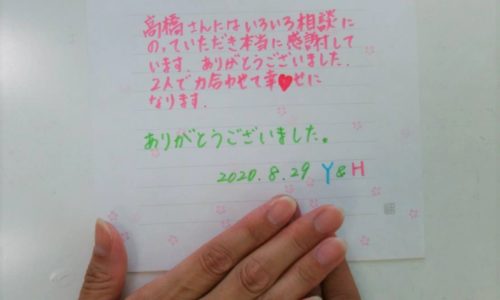 高橋さんにはいろいろ相談に
のっていただき本当に感謝して
います.ありがとうございました.
2人で力合わせて幸♥せに
なります.
ありがとうございました。
2020.8.29 Y&H